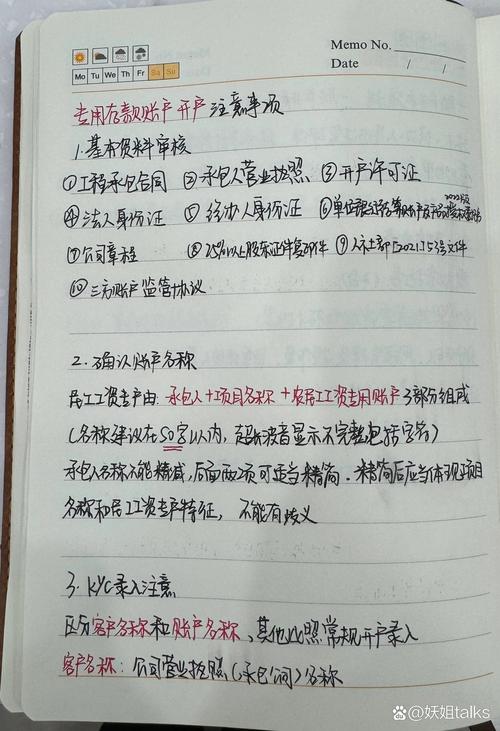 Memo No.
Mo Tu We Th Fr Sa Su
Date / /
专用存款账户开户注意事项
1.基本资料审核
①工程承包合同 ②承包人营业执照 ③开户许可证
④法人身份证 ⑤经办人身份证 ⑥单位银行结算账户及产品
⑦公司章程 ⑧25%以上股东证件复印件 ⑨人社部[2021]53号文件
⑩三方账户监管协议
2.确认账户名称
民工工资专户由:承包人+项目名称+农民工工资专用账户3部分组成
(名称建议在50字以内,超长 显示不完整包括字名)
承包人名称不能精减,后面两项可适当精简.精简后应当体现项目
名称和民工工资专户特征,不能有歧义
3.KYC录入注意
区分客户名称和账户名称,其他比照常规开户录入
客户名称:公司营业执照(承包公司)名称
@妖姐talks